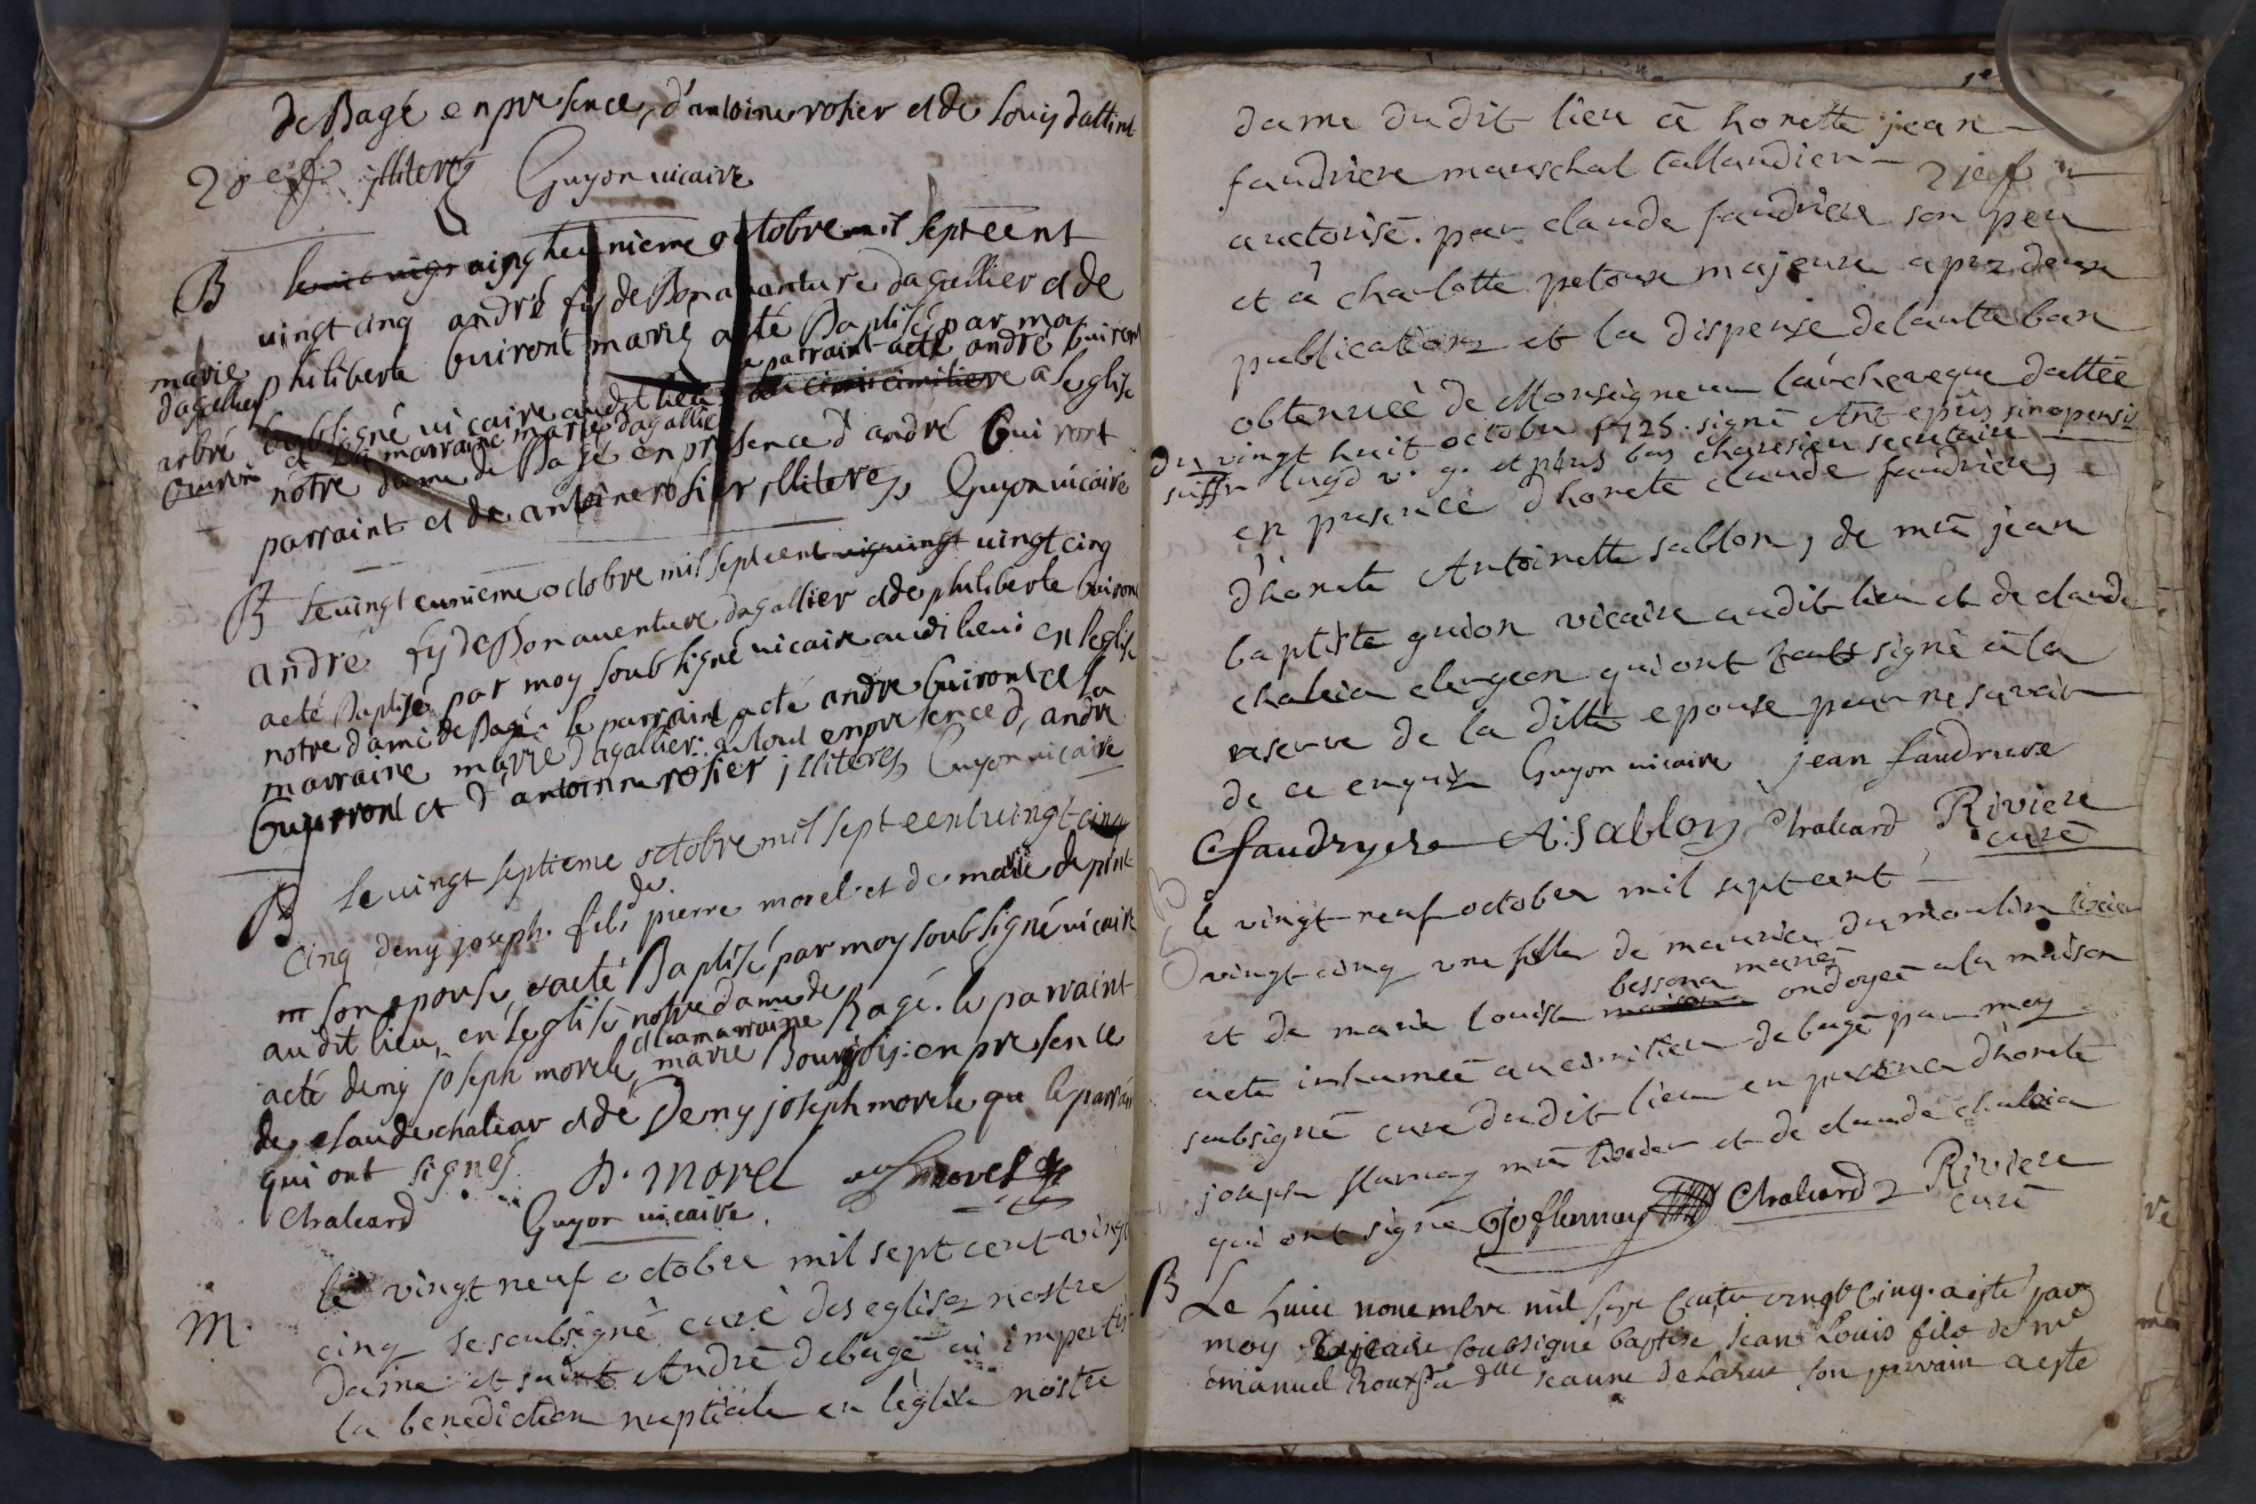 de Bagé en presence, d'antoine rosier et de Louis dattint
20e f. jlliterés Guyon vicaire
B le vingt eunieme octobre mil sept cent
vingt cinq andré fy de Bonavanture dagallier et de
marie dagallier
philiberte buiront mariés a été Baptisé par moy
le parraint acté andré buiront
soubsigné vicaire audit lieu a leglise
et la marraine marie dagallier
notre dame de Bagé en presence d'andré Buiront
parraint et de antoine rosier jlliterés Guyon vicaire
B le vingt eunieme octobre mil sept cent vingt cinq
andré fy de Bonaventure dagallier et de philiberte buiront
acté Baptisé par moy soubsigné vicaire audi lieui en leglise
notre dame de Bagé le parraint acté andre buiront et la
marraine marie dagallier: le tout en presence d, andre
buyront et d'antoinne rosier jlliterés, Guyon vicaire
B le vingt septieme octobre mil sept cent vingt cinq
cinq deny joseph. fils de pierre morel et de marie depint
son epouse, acté Baptisé par moy soubsigné vicaire
audit lieu, en leglise notre dame de Bagé. le parraint
acté deny joseph morele et la marraine marie Bourgois: en presence
de claude chaliar et dé Deny joseph morele qu le parrain
qui ont signes D. morel morel
Chaliard Guyon vicaire.
M. le vingt neuf octobre mil sept cent vingt
cinq je soubsigné curé des eglises nostre
dame et saint André de bagé ai impertis
la benediction nuptiale en leglise nostre
dame dudit lieu a honette jean
faudriere mareschal tallandier
auctorisé. par claude faudriere son pere
et a charlotte petoux majeure aprez deux
publications et la dispense de lautte ban
obtenueë de Monseigneur larcheveque dattée
du vingt huit octobre 1725. signé Ant epûs sinopensis
suffr lugd v. g. et plus bas charesieu secretaire
en presence dhonete claude faudriere,
dhonete Antoinette sablon, de mre jean
baptiste guion vicaire audit lieu et de claude
chaleia clergeon qui ont touts signé a la
reserve de la ditte epouse pour ne savoir
de ce enquis Guyon vicaire jean faudriere
Cfaudryere A:Sablon Chaliard Riviere
curé
le vingt neuf octobre mil sept cent
vingt cinq une fille de maurice du moulin
et de marie louise bessona mariés ondoyeé a la maison
aeté inhumeé au cimitiere de bagé par moy
soubsigné curé dudit lieu en presence dhonete
joseph flamay mre et de claude chaleia
qui ont signé Joflemay Chaliard Riviere
curé
B Le huict novembre mil sept Cents vingt Cinq. a esté par
moy vicaire soubsigné baptisé Jean Louis fils de mr
émanuel Roux & a dlle Jeanne Delarue son parrain a esté